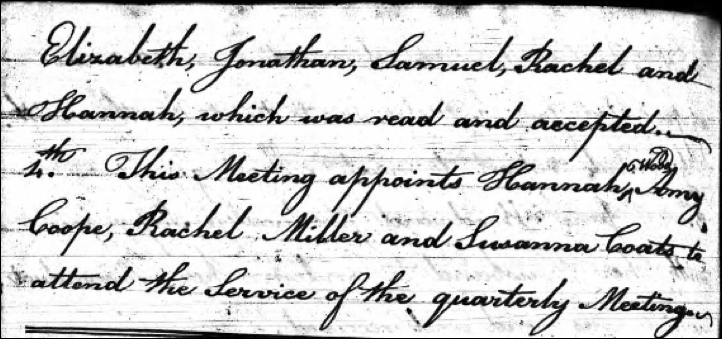 Elizabeth, Jonathan, Samuel, Rachel and
Hannah, which was read and accepted..
4.th This Meeting appoints Hannah, Amy
Coope, Rachel Miller and Susanna Coats to
attend the Service of the quarterly Meeting..